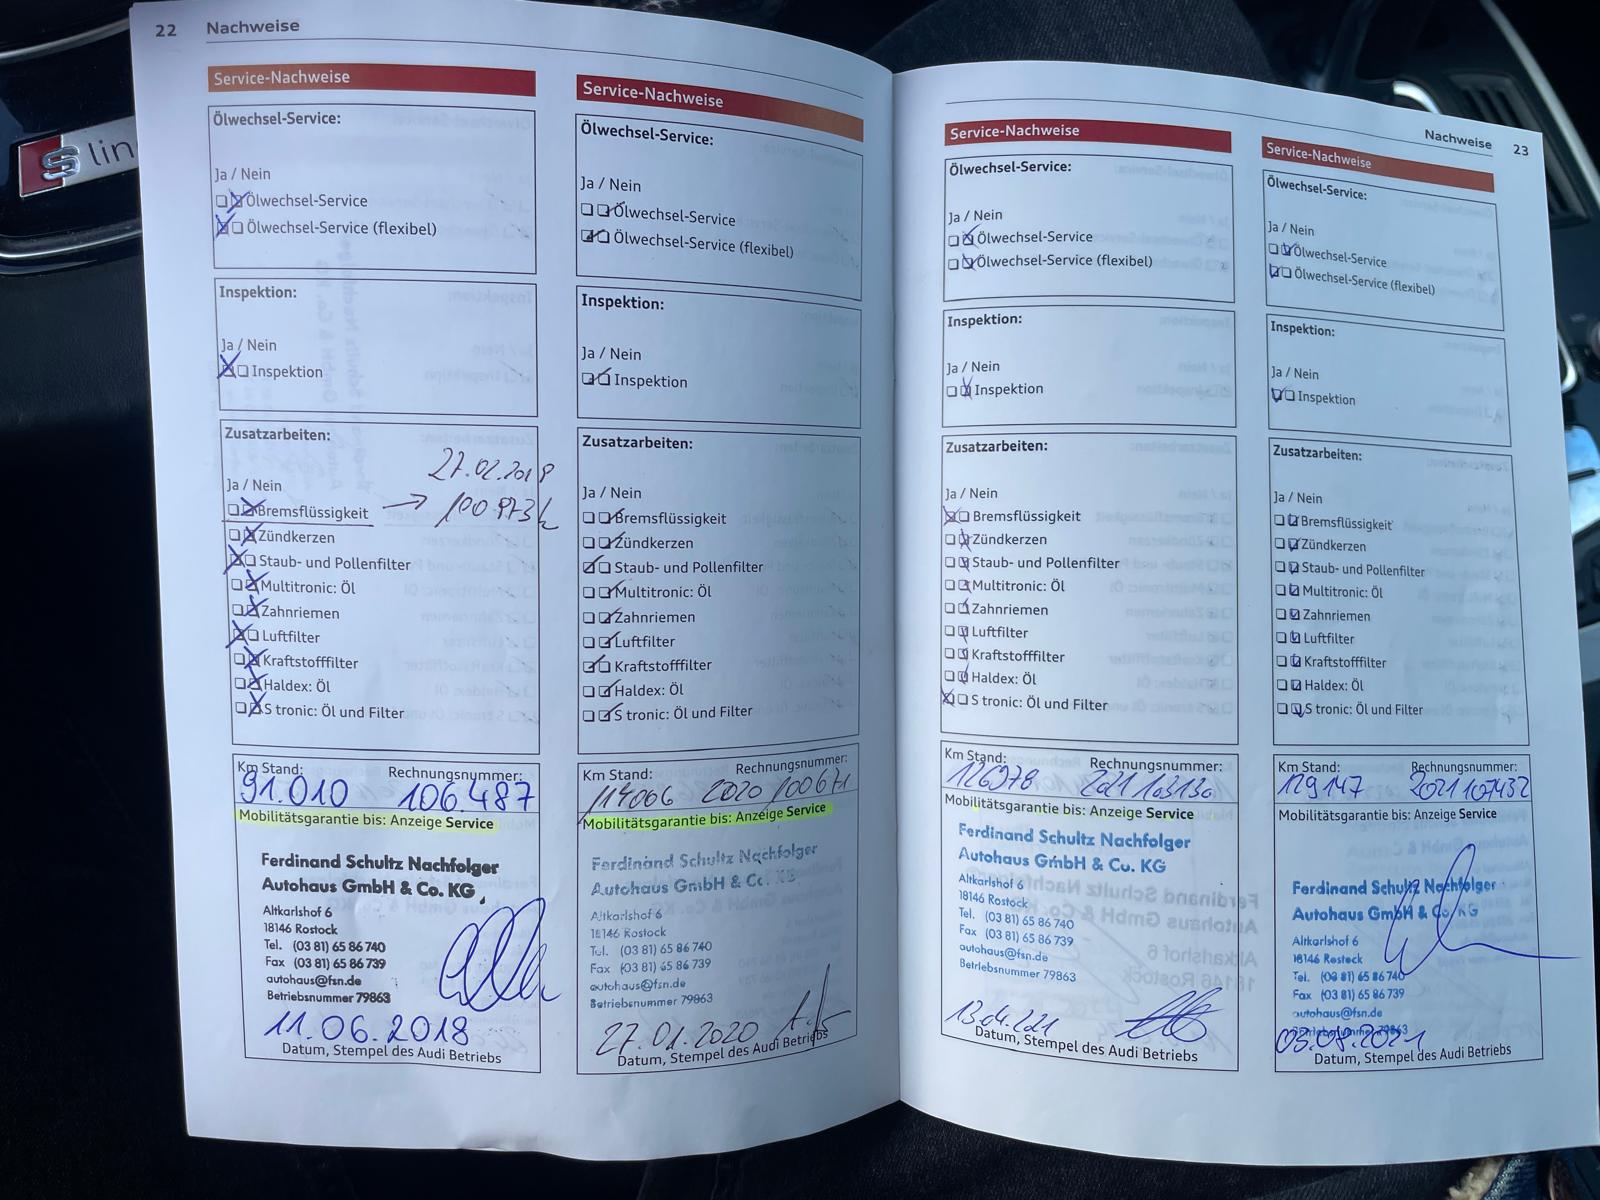 22 Nachweise
Service-Nachweise
Ölwechsel-Service:
Ja / Nein
Ölwechsel-Service
Ölwechsel-Service (flexibel)
Inspektion:
Ja / Nein
Inspektion
Zusatzarbeiten:
27.02.2019
Ja / Nein
Bremsflüssigkeit → 100 973 k
Zündkerzen
Staub- und Pollenfilter
Multitronic: Öl
Zahnriemen
Luftfilter
Kraftstofffilter
Haldex: Öl
S tronic: Öl und Filter
Km Stand: Rechnungsnummer:
91.010 106.487
Mobilitätsgarantie bis: Anzeige Service
Ferdinand Schultz Nachfolger
Autohaus GmbH & Co. KG
Altkarlshof 6
18146 Rostock
Tel. (03 81) 65 86 740
Fax (03 81) 65 86 739
autohaus@fsn.de
Betriebsnummer 79863
11.06.2018
Datum, Stempel des Audi Betriebs
Service-Nachweise
Ölwechsel-Service:
Ja / Nein
Ölwechsel-Service
Ölwechsel-Service (flexibel)
Inspektion:
Ja / Nein
Inspektion
Zusatzarbeiten:
Ja / Nein
Bremsflüssigkeit
Zündkerzen
Staub- und Pollenfilter
Multitronic: Öl
Zahnriemen
Luftfilter
Kraftstofffilter
Haldex: Öl
S tronic: Öl und Filter
Km Stand: Rechnungsnummer:
114066 2020 100671
Mobilitätsgarantie bis: Anzeige Service
Ferdinand Schultz Nachfolger
Autohaus GmbH & Co. KG
Altkarlshof 6
18146 Rostock
Tel. (03 81) 65 86 740
Fax (03 81) 65 86 739
autohaus@fsn.de
Betriebsnummer 79863
27.01.2020
Datum, Stempel des Audi Betriebs
Nachweise 23
Service-Nachweise
Ölwechsel-Service:
Ja / Nein
Ölwechsel-Service
Ölwechsel-Service (flexibel)
Inspektion:
Ja / Nein
Inspektion
Zusatzarbeiten:
Ja / Nein
Bremsflüssigkeit
Zündkerzen
Staub- und Pollenfilter
Multitronic: Öl
Zahnriemen
Luftfilter
Kraftstofffilter
Haldex: Öl
S tronic: Öl und Filter
Km Stand: Rechnungsnummer:
126978 2021 103130
Mobilitätsgarantie bis: Anzeige Service
Ferdinand Schultz Nachfolger
Autohaus GmbH & Co. KG
Altkarlshof 6
18146 Rostock
Tel. (03 81) 65 86 740
Fax (03 81) 65 86 739
autohaus@fsn.de
Betriebsnummer 79863
13.04.221
Datum, Stempel des Audi Betriebs
Service-Nachweise
Ölwechsel-Service:
Ja / Nein
Ölwechsel-Service
Ölwechsel-Service (flexibel)
Inspektion:
Ja / Nein
Inspektion
Zusatzarbeiten:
Ja / Nein
Bremsflüssigkeit
Zündkerzen
Staub- und Pollenfilter
Multitronic: Öl
Zahnriemen
Luftfilter
Kraftstofffilter
Haldex: Öl
S tronic: Öl und Filter
Km Stand: Rechnungsnummer:
129147 2021 107432
Mobilitätsgarantie bis: Anzeige Service
Ferdinand Schultz Nachfolger
Autohaus GmbH & Co. KG
Altkarlshof 6
18146 Rostock
Tel. (03 81) 65 86 740
Fax (03 81) 65 86 739
autohaus@fsn.de
Betriebsnummer 79863
03.08.2021
Datum, Stempel des Audi Betriebs
S lin